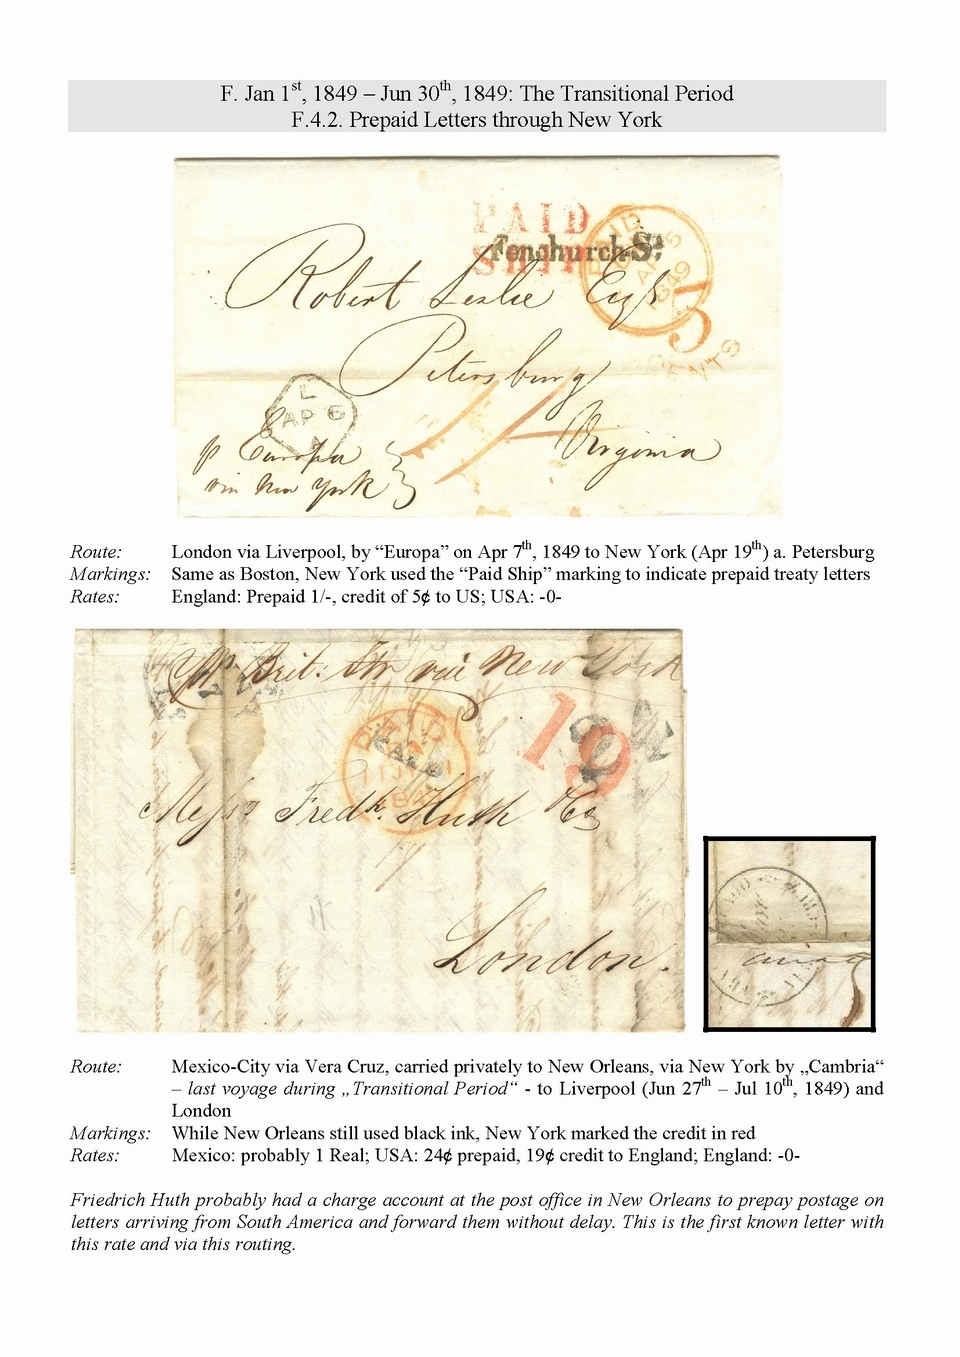 F. Jan 1st, 1849 – Jun 30th, 1849: The Transitional Period
F.4.2. Prepaid Letters through New York
PAID
SHIP
Fenchurch St
PAID
AP 5
1849
5
CENTS
Robert Leslie Esqr
Petersburg
Virginia
L
AP 6
A
1/-
p Europa
via New York
Route: London via Liverpool, by “Europa” on Apr 7th, 1849 to New York (Apr 19th) a. Petersburg
Markings: Same as Boston, New York used the “Paid Ship” marking to indicate prepaid treaty letters
Rates: England: Prepaid 1/-, credit of 5¢ to US; USA: -0-
Pr Brit: Str via New York
PAID
11 JY 11
184
PAID
19
24
Messrs Fredk. Huth & Co
London.
Route: Mexico-City via Vera Cruz, carried privately to New Orleans, via New York by „Cambria“
– last voyage during „Transitional Period“ - to Liverpool (Jun 27th – Jul 10th, 1849) and
London
Markings: While New Orleans still used black ink, New York marked the credit in red
Rates: Mexico: probably 1 Real; USA: 24¢ prepaid, 19¢ credit to England; England: -0-
Friedrich Huth probably had a charge account at the post office in New Orleans to prepay postage on
letters arriving from South America and forward them without delay. This is the first known letter with
this rate and via this routing.